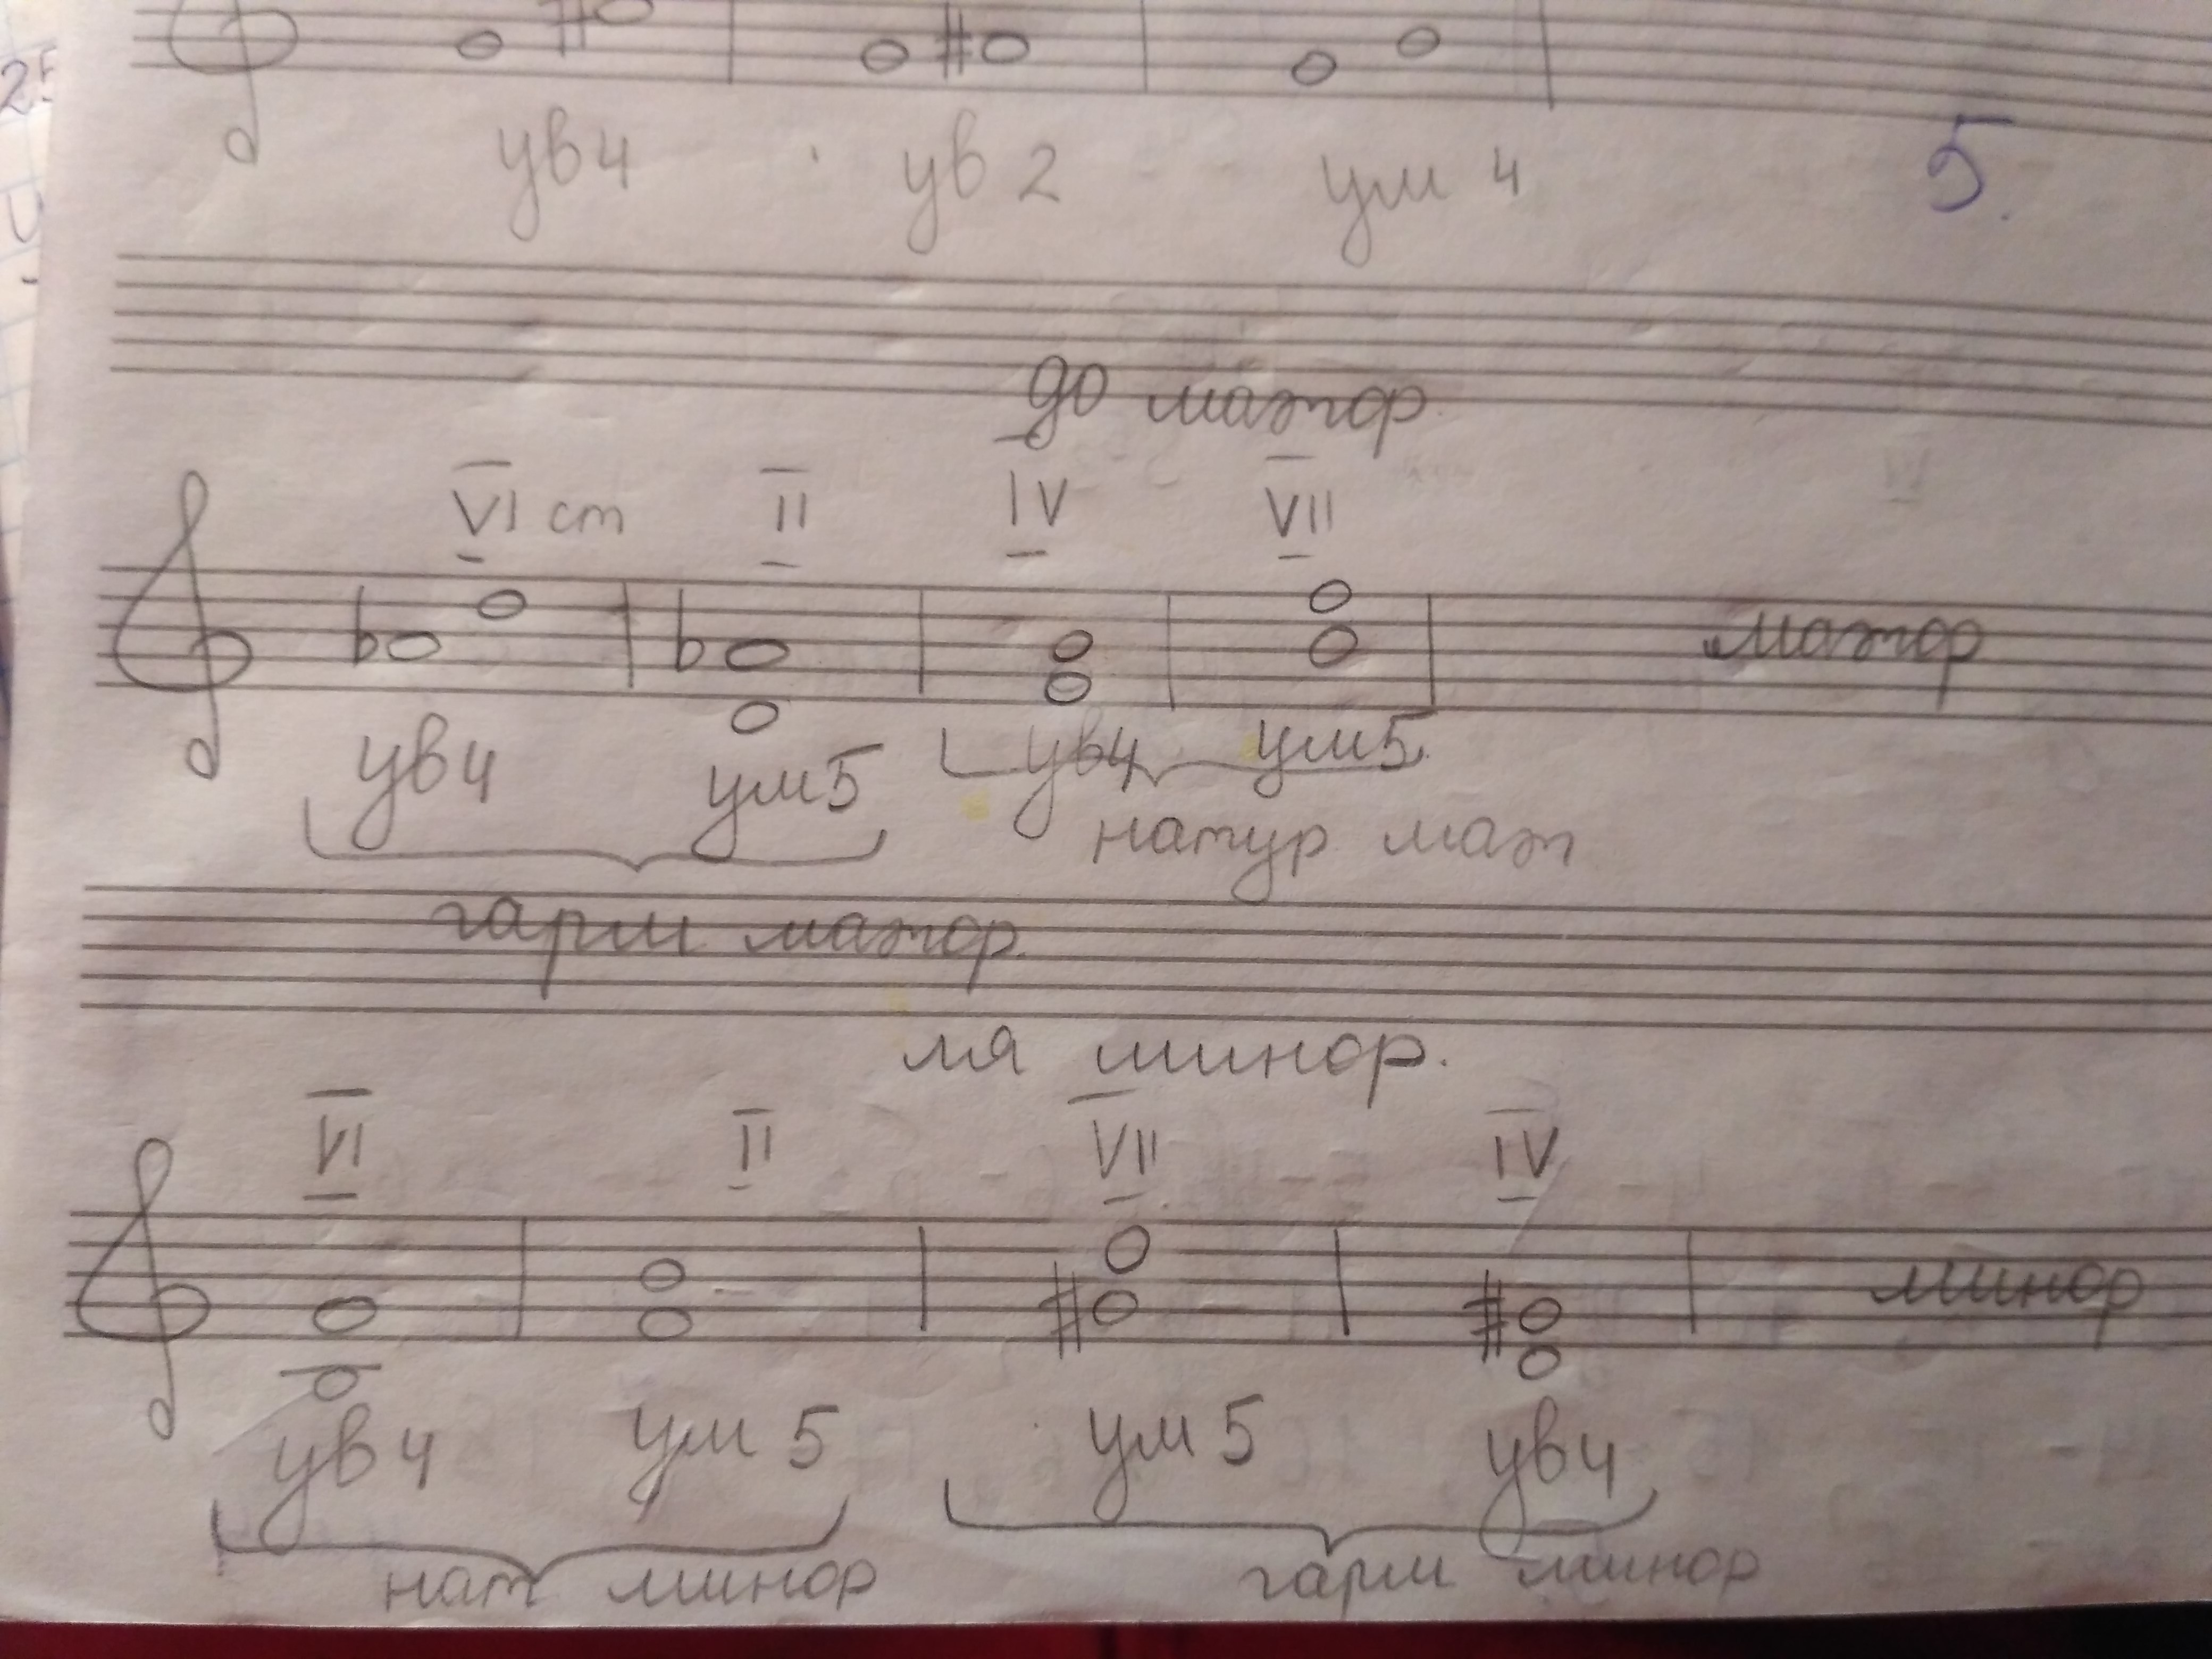 25
ув4 ув 2 ум 4
5.
до мажор
VI ст II IV VII
мажор
ув4 ум5 ув4 ум5
натур маж
гарм мажор.
ля минор.
VI II VII IV
минор
ув4 ум 5 ум 5 ув4
нат минор гарм минор